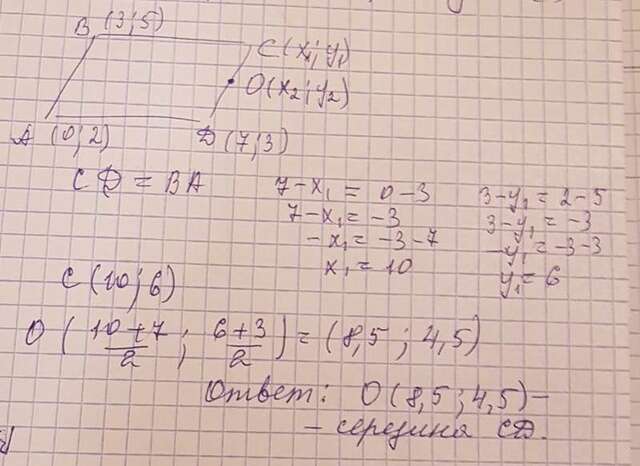 B (3; 5)
C (x₁; y₁)
O (x₂; y₂)
A (0; 2)
D (7; 3)
CD = BA
7 - x₁ = 0 - 3
7 - x₁ = -3
-x₁ = -3 - 7
x₁ = 10
3 - y₁ = 2 - 5
3 - y₁ = -3
-y₁ = -3 - 3
y₁ = 6
C (10; 6)
O ( 10+7/2 ; 6+3/2 ) = (8,5 ; 4,5)
Ответ: O (8,5 ; 4,5) -
- середина CD.